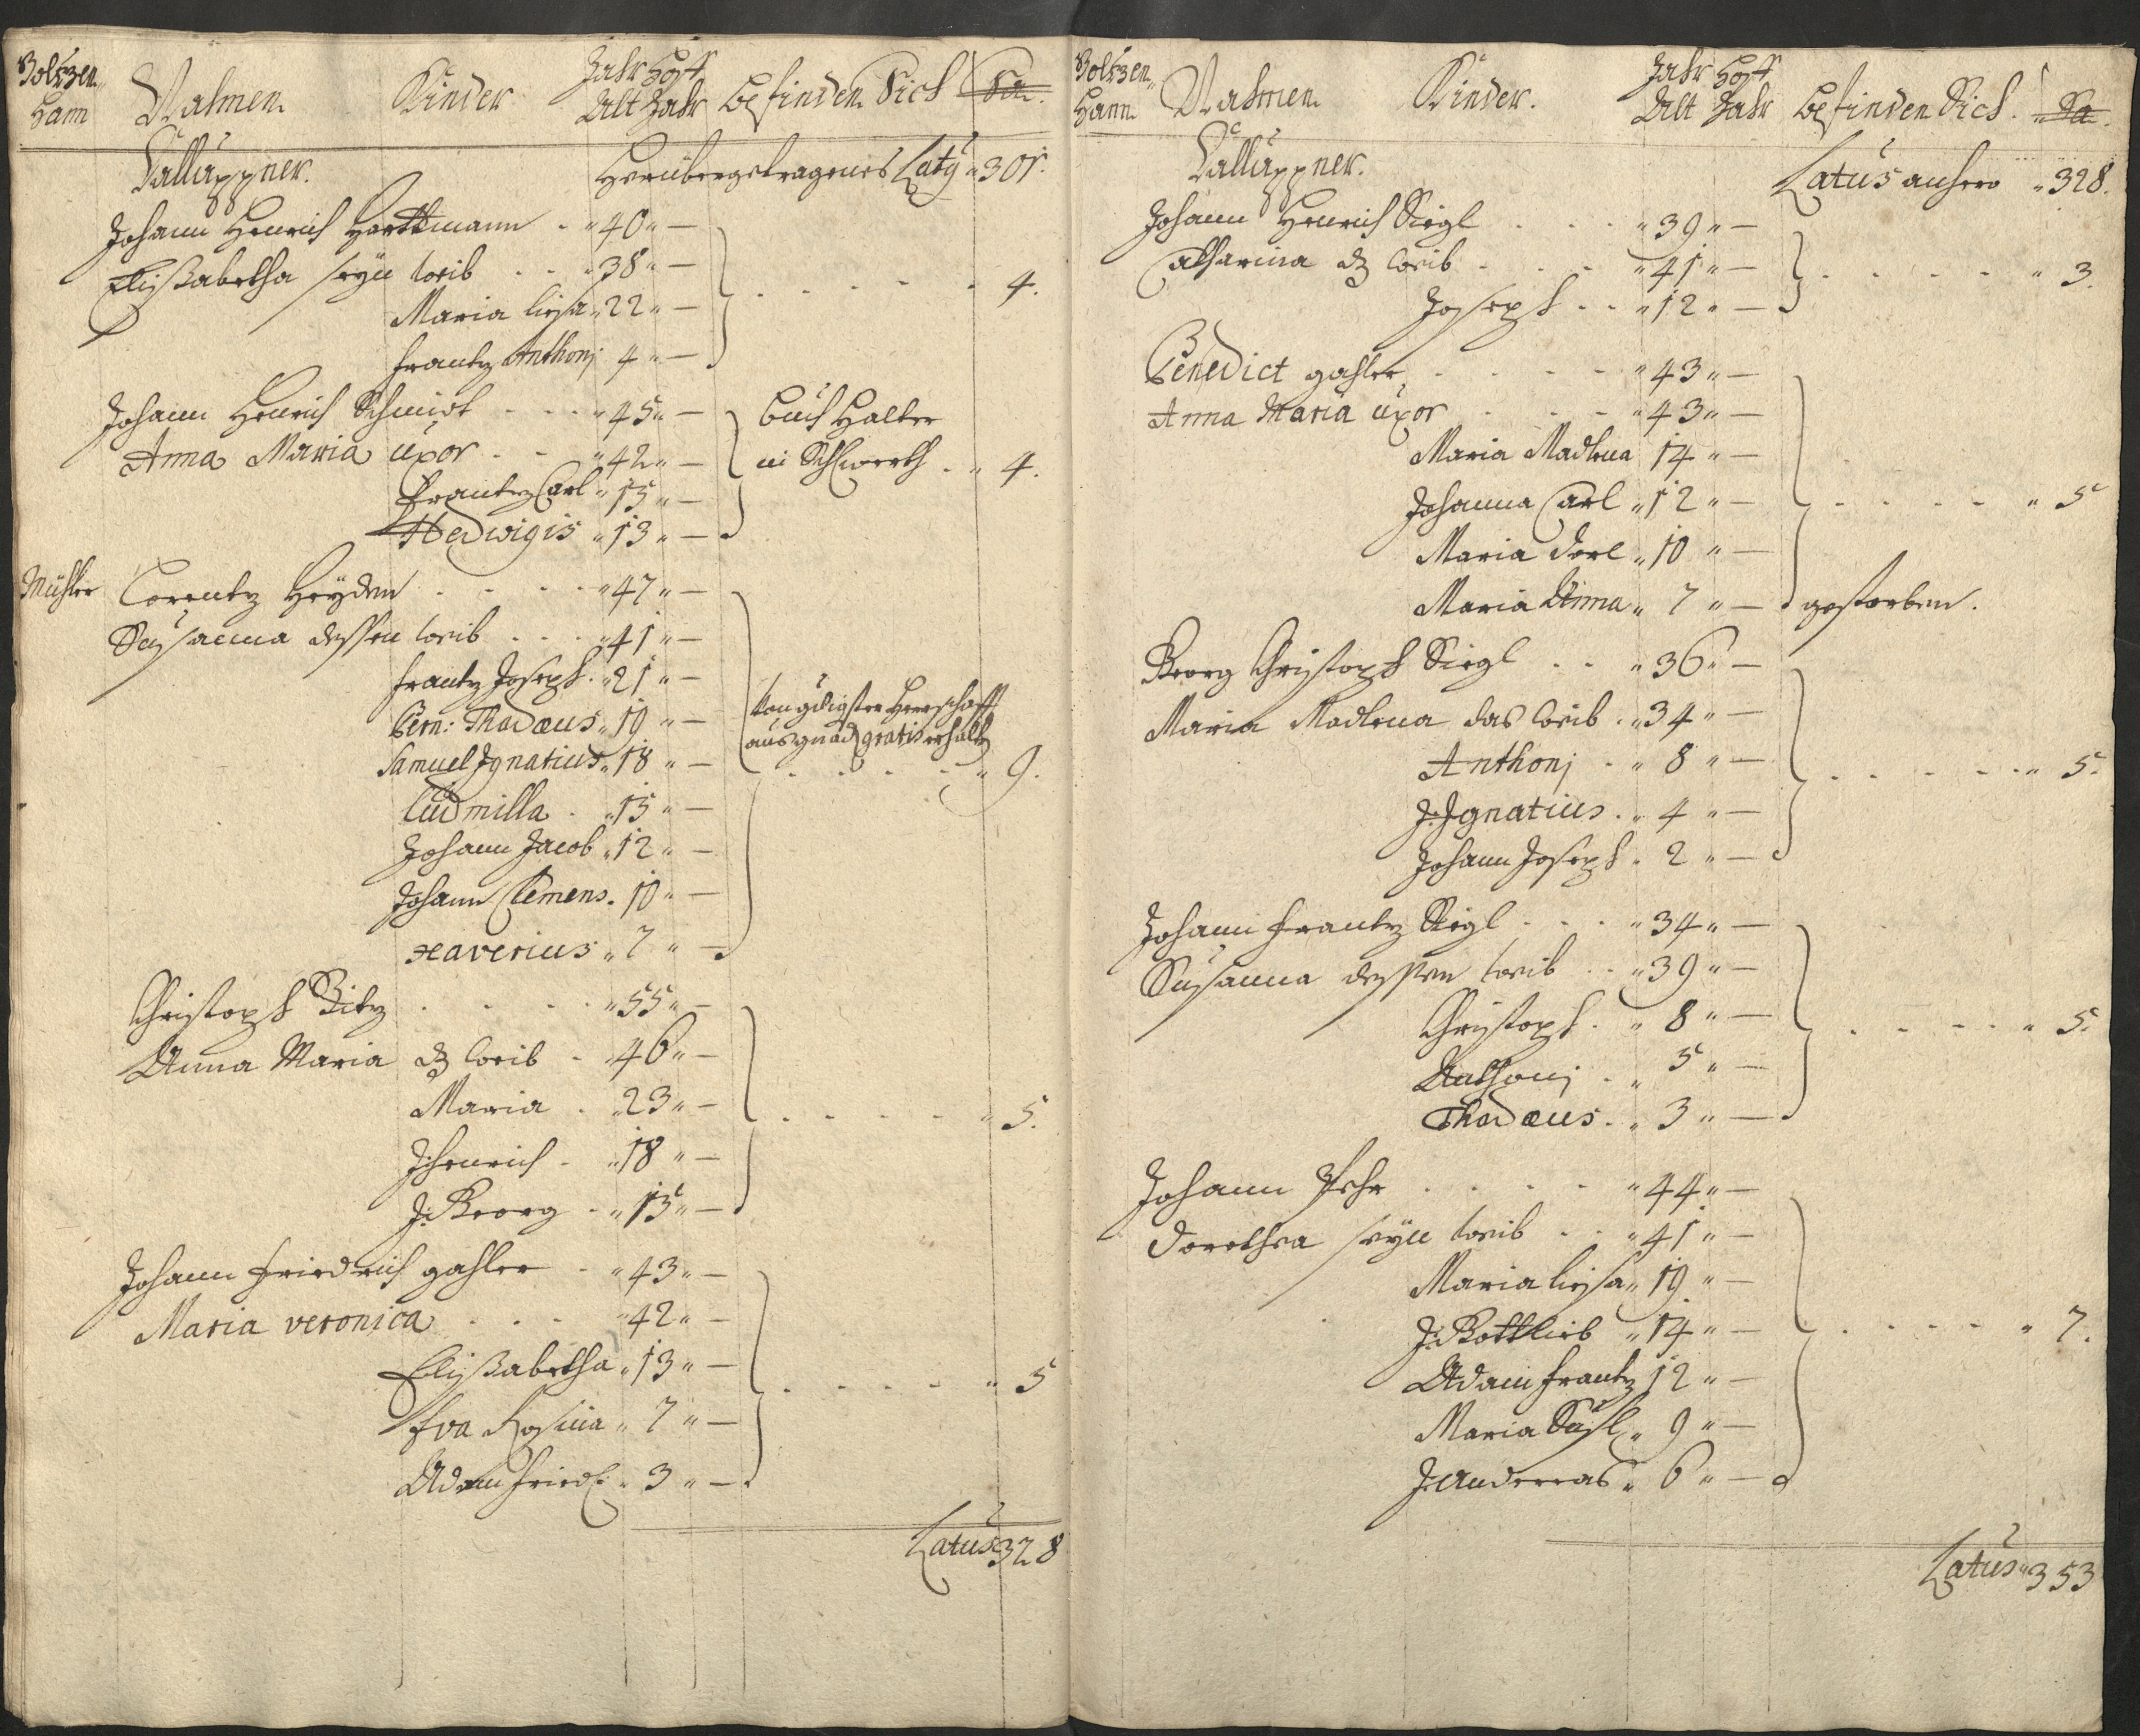 Holtzen
Hann Nahmen Kinder Jahr Hoff
Alt Jahr Befinden Sich Sa.
Challuppner. Herübergetragenes Laty 301.
Johann Henrich Harttmann 40
Elisabetha seyn Weib 38
Maria Liesa 22 4.
Frantz Anthonj 4
Johann Henrich Schmidt 45 Buch Halter
Anna Maria uxor 42 in Schlwerth 4.
Frantz Carl 15
Hedwigis 13
Mühler Lorentz Heyden 47
Susanna dessen Weib 41
Frantz Joseph 21
Bern: Thadæus 19 Von gdigster Herrschafft
Samuel Ignatius 18 aus gnad gratis erhalt 9.
Ludmilla 15
Johann Jacob 12
Johann Clemens 10
Xaverius 7
Christoph Bitz 55
Anna Maria dz Weib 46
Maria 23 5.
J: Henrich 18
J: Georg 15
Johann Friedrich Gahler 43
Maria Veronica 42
Elisabetha 13 5
Eva Rosina 7
Adam Friedl: 3
Latus 328
Holtzen
Hann Nahmen Kinder. Jahr Hoff
Alt Jahr Befinden Sich. Sa.
Challuppner. Latus anhero 328.
Johann Henrich Siegl 39
Catharina dz Weib 41 3.
Joseph 12
Benedict Gahler 43
Anna Maria uxor 43
Maria Madlena 14
Johanna Carl 12 5
Maria Dorl 10
Maria Anna 7 gestorben.
Georg Christoph Siegl 36
Maria Madlena das Weib 34
Anthonj 8 5.
J: Ignatius 4
Johann Joseph 2
Johann Frantz Siegl 34
Susanna dessen Weib 39
Christoph 8 5.
Anthonj 5
Thadæus 3
Johann 44
Dorothea seyn Weib 41
Maria Liesa 19
J: Gottlieb 14 7.
Adam Frantz 12
Maria Susl 9
J: Anderreas 6
Latus 353